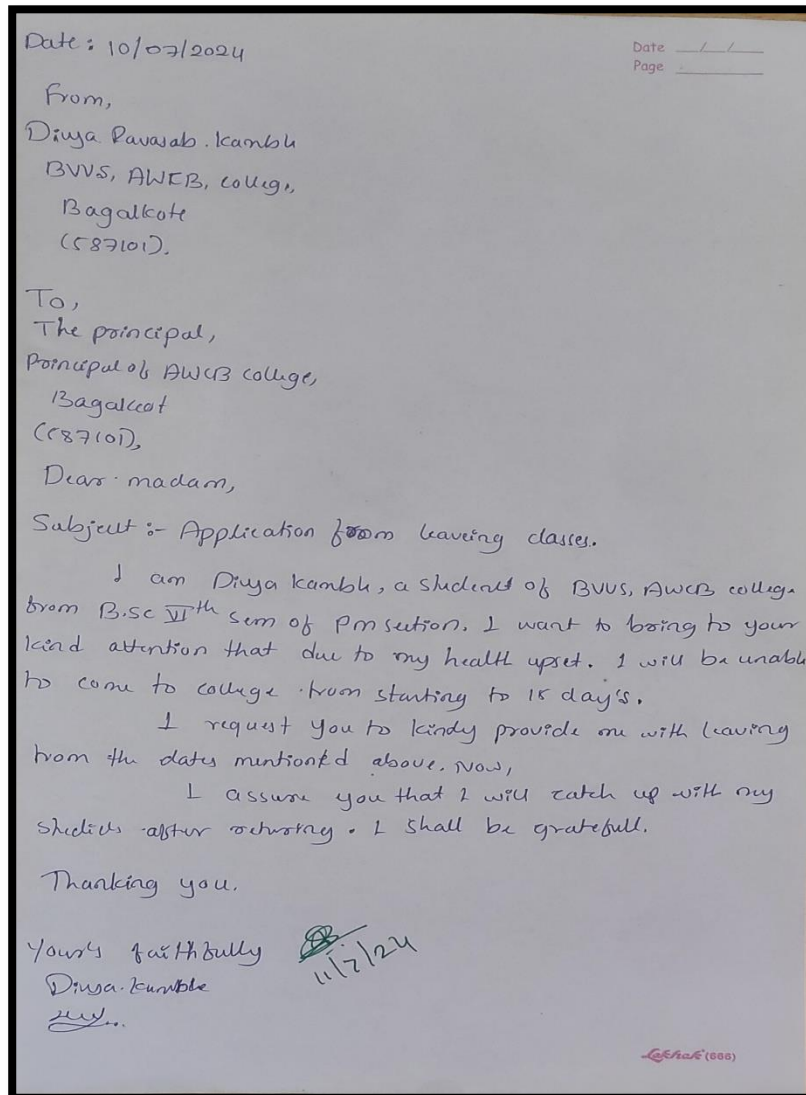 Date : 10/07/2024
Date __/__/__
Page ______
From,
Divya Ravasab . Kamble
BVVS, AWCB, college,
Bagalkote
(587101).
To,
The principal,
Principal of AWCB college,
Bagalkot
(587101),
Dear madam,
Subject :- Application from leaveing classes.
I am Divya kamble, a student of BVVS, AWCB college
from B.sc VIth sem of PM section. I want to bring to your
kind attention that due to my health upset. I will be unable
to come to college from starting to 15 day's.
I request you to kindy provide me with leaving
from the dates mentioned above. Now,
I assure you that I will catch up with my
studies after returing. I shall be gratefull.
Thanking you.
Your's faithfully
11/7/24
Divya.kamble
Lekhak (666)